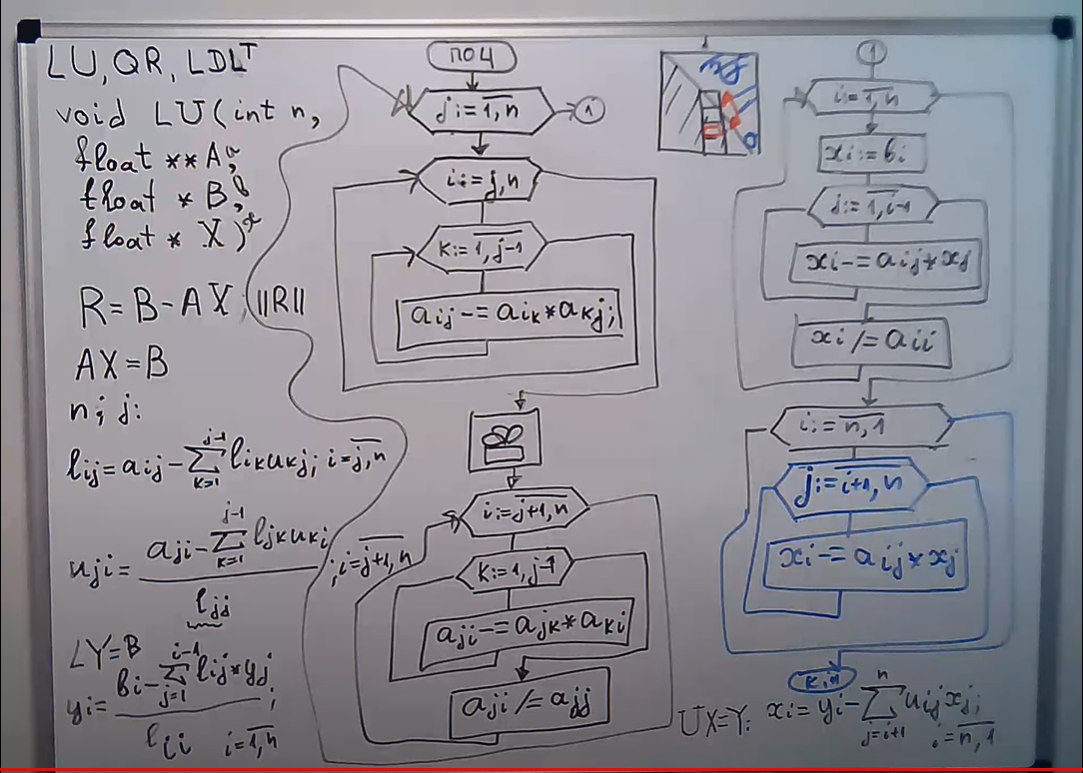 LU, QR, LDLᵀ
void LU(int n,
float **A,
float *B,
float *X)
R=B-AX; ||R||
AX=B
n; j:
lij=aij-∑(k=1)^(j-1) lik ukj; i=j,n
uji=(aji-∑(k=1)^(j-1) ljk uki)/ljj; i=j+1,n
LY=B
yi=(bi-∑(j=1)^(i-1) lij*yj)/lii; i=1,n
j:=1,n
1
i:=j,n
k:=1,j-1
aij-=aik*akj;
i:=j+1,n
k:=1,j-1
aji-=ajk*aki
aji/=ajj
1
i:=1,n
xi:=bi
j:=1,i-1
xi-=aij*xj
xi/=aii
i:=n,1
j:=i+1,n
xi-=aij*xj
UX=Y: xi=yi-∑(j=i+1)^n uij xj;
i=n,1